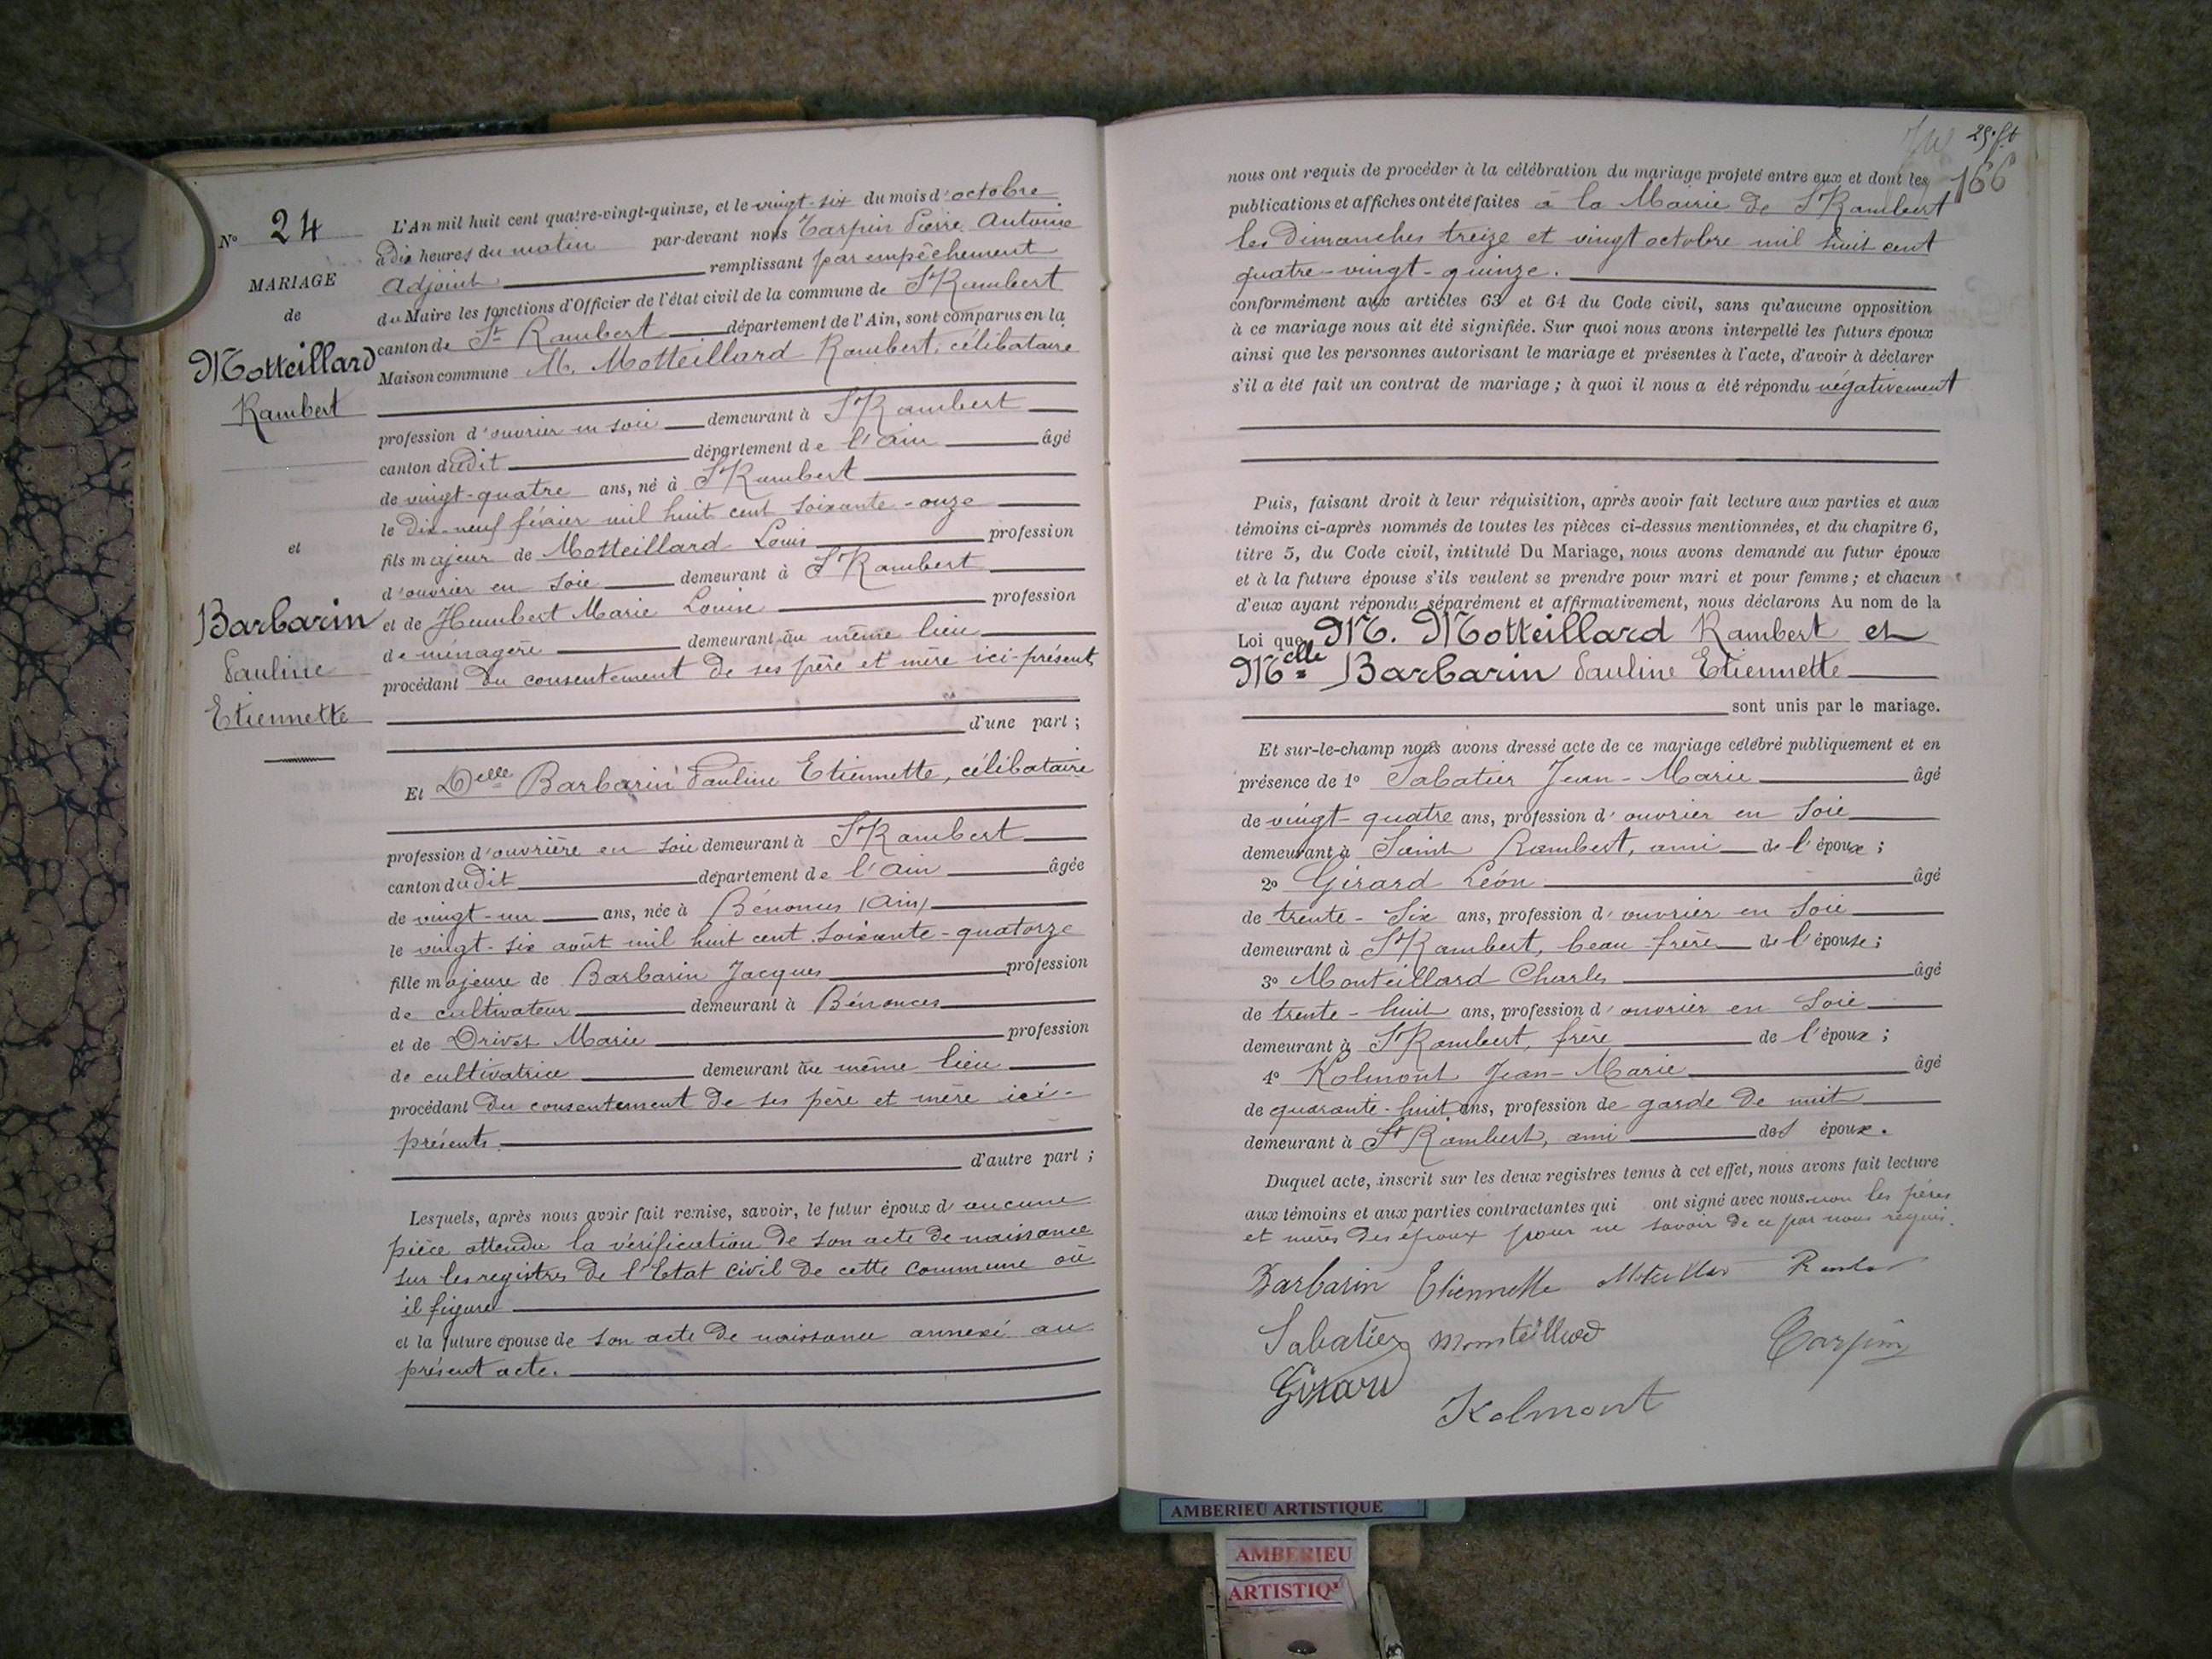 N° 24
MARIAGE
de
Motteillard
Rambert
et
Barbarin
Pauline
Etiennette
L'An mil huit cent quatre-vingt-quinze, et le vingt-six du mois d'octobre
à dix heures du matin par-devant nous Tarpin Pierre Antoine
Adjoint remplissant par empêchement
du Maire les fonctions d'Officier de l'état civil de la commune de St Rambert
canton de St Rambert département de l'Ain, sont comparus en la
Maison commune M. Motteillard Rambert, célibataire
profession d'ouvrier en soie demeurant à St Rambert
canton dudit département de l'Ain âgé
de vingt-quatre ans, né à St Rambert
le dix-neuf février mil huit cent soixante-onze
fils majeur de Motteillard Louis profession
d'ouvrier en soie demeurant à St Rambert
et de Humbert Marie Louise profession
de ménagère demeurant au même lieu
procédant du consentement de ses père et mère ici-présents
d'une part ;
Et Delle Barbarin Pauline Etiennette, célibataire
profession d'ouvrière en soie demeurant à St Rambert
canton dudit département de l'Ain âgée
de vingt-un ans, née à Bénonces (Ain)
le vingt-six août mil huit cent soixante-quatorze
fille majeure de Barbarin Jacques profession
de cultivateur demeurant à Bénonces
et de Drivet Marie profession
de cultivatrice demeurant au même lieu
procédant du consentement de ses père et mère ici-
présents
d'autre part ;
Lesquels, après nous avoir fait remise, savoir, le futur époux d'aucune
pièce attendu la vérification de son acte de naissance
sur les registres de l'Etat civil de cette commune où
il figure
et la future épouse de son acte de naissance annexé au
présent acte.
25. f.t
166
nous ont requis de procéder à la célébration du mariage projeté entre eux et dont les
publications et affiches ont été faites à la Mairie de St Rambert
les dimanches treize et vingt octobre mil huit cent
quatre-vingt-quinze.
conformément aux articles 63 et 64 du Code civil, sans qu'aucune opposition
à ce mariage nous ait été signifiée. Sur quoi nous avons interpellé les futurs époux
ainsi que les personnes autorisant le mariage et présentes à l'acte, d'avoir à déclarer
s'il a été fait un contrat de mariage ; à quoi il nous a été répondu négativement
Puis, faisant droit à leur réquisition, après avoir fait lecture aux parties et aux
témoins ci-après nommés de toutes les pièces ci-dessus mentionnées, et du chapitre 6,
titre 5, du Code civil, intitulé Du Mariage, nous avons demandé au futur époux
et à la future épouse s'ils veulent se prendre pour mari et pour femme ; et chacun
d'eux ayant répondu séparément et affirmativement, nous déclarons Au nom de la
Loi que M. Motteillard Rambert et
Melle Barbarin Pauline Etiennette
sont unis par le mariage.
Et sur-le-champ nous avons dressé acte de ce mariage célébré publiquement et en
présence de 1° Sabatier Jean-Marie âgé
de vingt quatre ans, profession d'ouvrier en soie
demeurant à Saint Rambert, ami de l'époux ;
2° Girard Léon âgé
de trente-six ans, profession d'ouvrier en soie
demeurant à St Rambert, beau-frère de l'épouse ;
3° Monteillard Charles âgé
de trente-huit ans, profession d'ouvrier en soie
demeurant à St Rambert, frère de l'époux ;
4° Kolmont Jean-Marie âgé
de quarante-huit ans, profession de garde de nuit
demeurant à St Rambert, ami des époux.
Duquel acte, inscrit sur les deux registres tenus à cet effet, nous avons fait lecture
aux témoins et aux parties contractantes qui ont signé avec nous non les pères
et mères des époux pour ne savoir de ce par nous requis.
Barbarin Etiennette
Sabatier Monteillard Tarpin
Girard
Kolmont
AMBERIEU ARTISTIQUE
AMBERIEU
ARTISTIQ